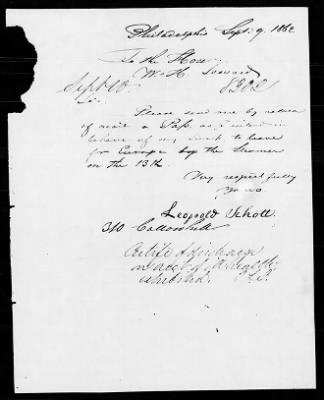 Philadelphia Sept. 9, 1862
To the Hon.
W. H. Seward
Sept 10 8302
Sir.
Please send me by return
of mail a Pass, as I intend in
behalf of my to leave
for Europe by the Steamer
on the 13th.
Very respectfully
Yours
Leopold Schott
310 Callowhill
Certife of discharge
on acct of
exhibited.